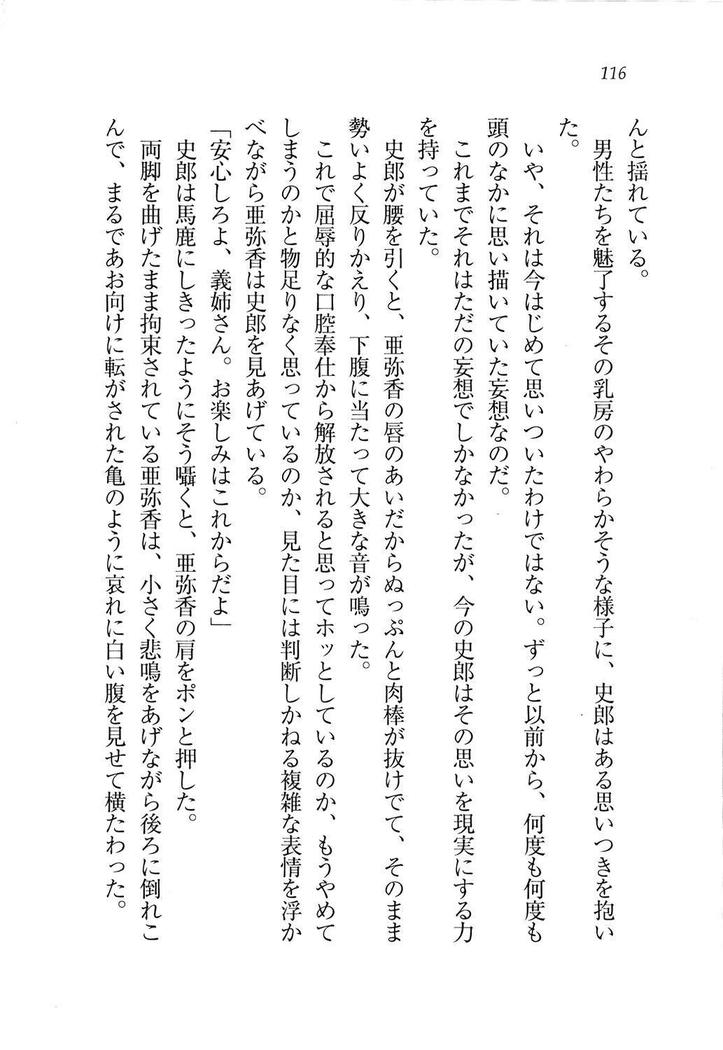 116
んと揺れている。
男性たちを魅了するその乳房のやわらかそうな様子に、史郎はある思いつきを抱い
た。
いや、それは今はじめて思いついたわけではない。ずっと以前から、何度も何度も
頭のなかに思い描いていた妄想なのだ。
これまでそれはただの妄想でしかなかったが、今の史郎はその思いを現実にする力
を持っていた。
史郎が腰を引くと、亜弥香の唇のあいだからぬっぷんと肉棒が抜けでて、そのまま
勢いよく反りかえり、下腹に当たって大きな音が鳴った。
これで屈辱的な口腔奉仕から解放されると思ってホッとしているのか、もうやめて
しまうのかと物足りなく思っているのか、見た目には判断しかねる複雑な表情を浮か
べながら亜弥香は史郎を見あげている。
「安心しろよ、義姉さん。お楽しみはこれからだよ」
史郎は馬鹿にしきったようにそう囁くと、亜弥香の肩をポンと押した。
両脚を曲げたまま拘束されている亜弥香は、小さく悲鳴をあげながら後ろに倒れこ
んで、まるであお向けに転がされた亀のように哀れに白い腹を見せて横たわった。